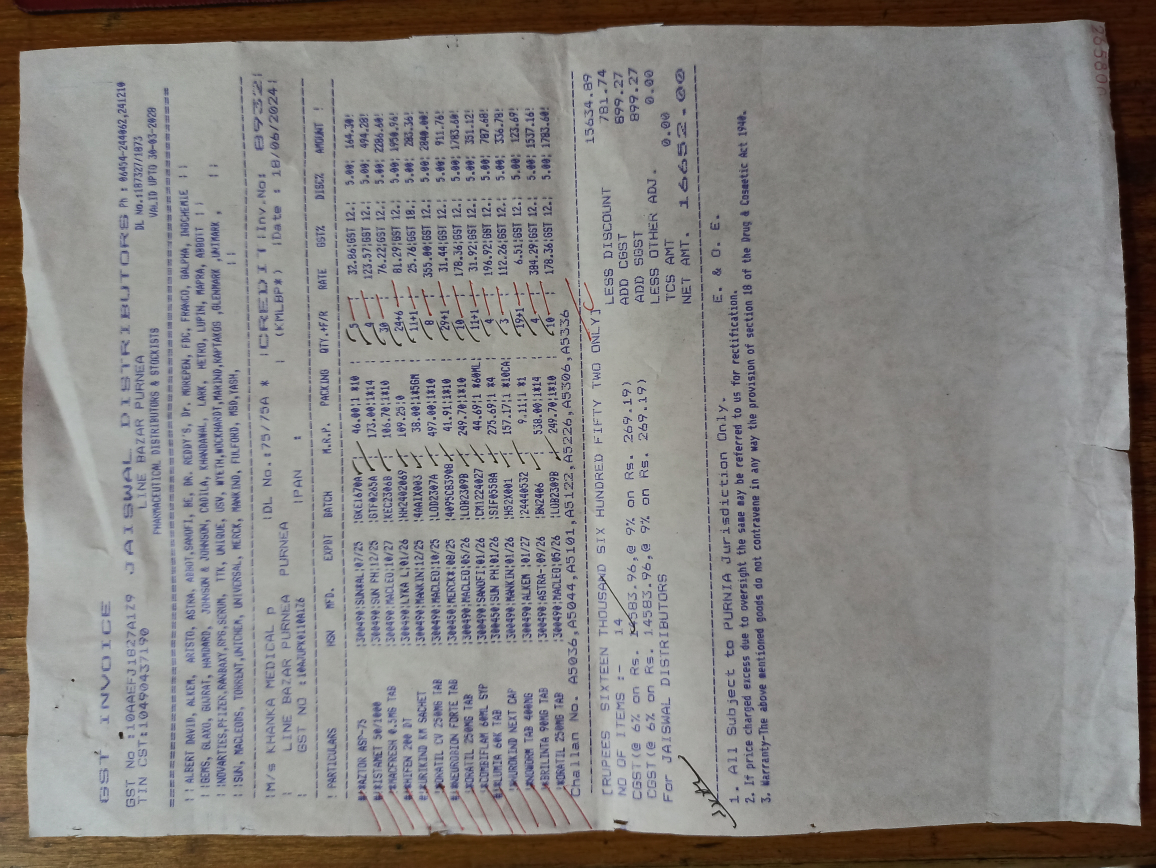 GST INVOICE
GST No :10AAEFJ1827A1Z9 JAISWAL DISTRIBUTORS Ph : 06454-244062,241210
TIN CST:10490437190 LINE BAZAR PURNEA DL No.:1873Z7/1873
PHARMACEUTICAL DISTRIBUTORS & STOCKISTS VALID UPTO 30-03-2028
! ! ALBERT DAVID, ALKEM, ARISTO, ASTRA, ABBOT,SANOFI, BE, DR. REDDY'S, Dr. MOREPEN, FDC, FRANCO, GALPHA, INDCHEMIE ! !
! !GEMS, GLAXO, GUJRAT, HAMDARD, JOHNSON & JOHNSON, CADILA, KHANDAWAL, LARK, HETRO, LUPIN, MAPRA, ABBOTT ! !
! !NOVARTIES,PFIZER,RANBAXY,RPG,SERUM, TTK, UNIQUE, USV, WYTH,WOCKHARDT,MAKIND,RAPTAKOS ,GLENMARK ,UNIMARK , ! !
! !SUN, MACLEODS, TORRENT,UNICHEM, UNIVERSAL, MERCK, MANKIND, FULFORD, MSD,TASH, ! !
!M/s KHANKA MEDICAL p !DL No.:75/75A * !CREDIT!Inv.No: 8932!
! LINE BAZAR PURNEA PURNEA ! (KMLBP*) !Date : 18/06/2024!
! GST NO : !PAN :
! PARTICULARS HSN MFD. EXPDT BATCH M.R.P. PACKING QTY.+F/R RATE GST% DISC% AMOUNT !
AZTOR ASP-75 !300490!SUN*AL!07/25 !GKE1670A! 46.00!1 *10 5 32.86!GST 12.! 5.00! 164.30!
ISTAMET 50/1000 !300490!SUN PH!12/25 !GTF0265A! 173.00!1*14 4 123.57!GST 12.! 5.00! 494.28!
MACFRESH 0.5MG TAB !300490!MACLEO!10/27 !KEC2306B! 106.70!1*10 30 76.22!GST 12.! 5.00! 2286.60!
HIFEN 200 DT !300490!LYKA L!01/26 !HH2402069! 109.25!0 24+6 81.29!GST 12.! 5.00! 1950.96!
URIKIND KM SACHET !300490!MANKIN!12/25 !4AA1X003! 38.00!1*5GM 11+1 25.76!GST 18.! 5.00! 283.36!
ORATIL CV 250MG TAB !300490!MACLEO!10/25 !LOD2307A! 497.00!1*10 8 355.00!GST 12.! 5.00! 2840.00!
NEUROBION FORTE TAB !300450!MERCK*!08/25 !4095CB390B! 41.91!1*10 29+1 31.44!GST 12.! 5.00! 911.76!
ORATIL 250MG TAB !300490!MACLEO!05/26 !LOB2309B! 249.70!1*10 10 178.36!GST 12.! 5.00! 1783.60!
COMBIFLAM 60ML SYP !300490!SANOFI!01/26 !CM1224027! 44.69!1 *60ML 11+1 31.92!GST 12.! 5.00! 351.12!
LUMIA 60K TAB !300450!SUN PH!01/26 !SIF0558A! 275.69!1 *4 4 196.92!GST 12.! 5.00! 787.68!
NUROKIND NEXT CAP !300490!MANKIN!01/26 !H52X001 ! 157.17!1 *10CA! 3 112.26!GST 12.! 5.00! 336.78!
NOWORM TAB 400MG !300490!ALKEM !01/27 !24440532 ! 9.11!1 *1 19+1 6.51!GST 12.! 5.00! 123.69!
BRILINTA 90MG TAB !300490!ASTRA-!09/26 !BN2406 ! 538.00!1*14 4 384.29!GST 12.! 5.00! 1537.16!
ORATIL 250MG TAB !300490!MACLEO!05/26 !LOB2309B! 249.70!1*10 10 178.36!GST 12.! 5.00! 1783.60!
Challan No. A5036,A5044,A5101,A5122,A5226,A5306,A5336
15634.89
[RUPEES SIXTEEN THOUSAND SIX HUNDRED FIFTY TWO ONLY] LESS DISCOUNT 781.74
NO OF ITEMS :- 14 ADD CGST 899.27
CGST(@ 6% on Rs. 14583.96,@ 9% on Rs. 269.19) ADD SGST 899.27
CGST(@ 6% on Rs. 14583.96,@ 9% on Rs. 269.19) LESS OTHER ADJ. 0.00
For JAISWAL DISTRIBUTORS TCS AMT 0.00
NET AMT. 16652.00
E. & O. E.
1. All Subject to PURNIA Jurisdiction Only.
2. If price charged excess due to oversight the same may be referred to us for rectification.
3. Warranty-The above mentioned goods do not contravene in any way the provision of section 18 of the Drug & Cosmetic Act 1940.